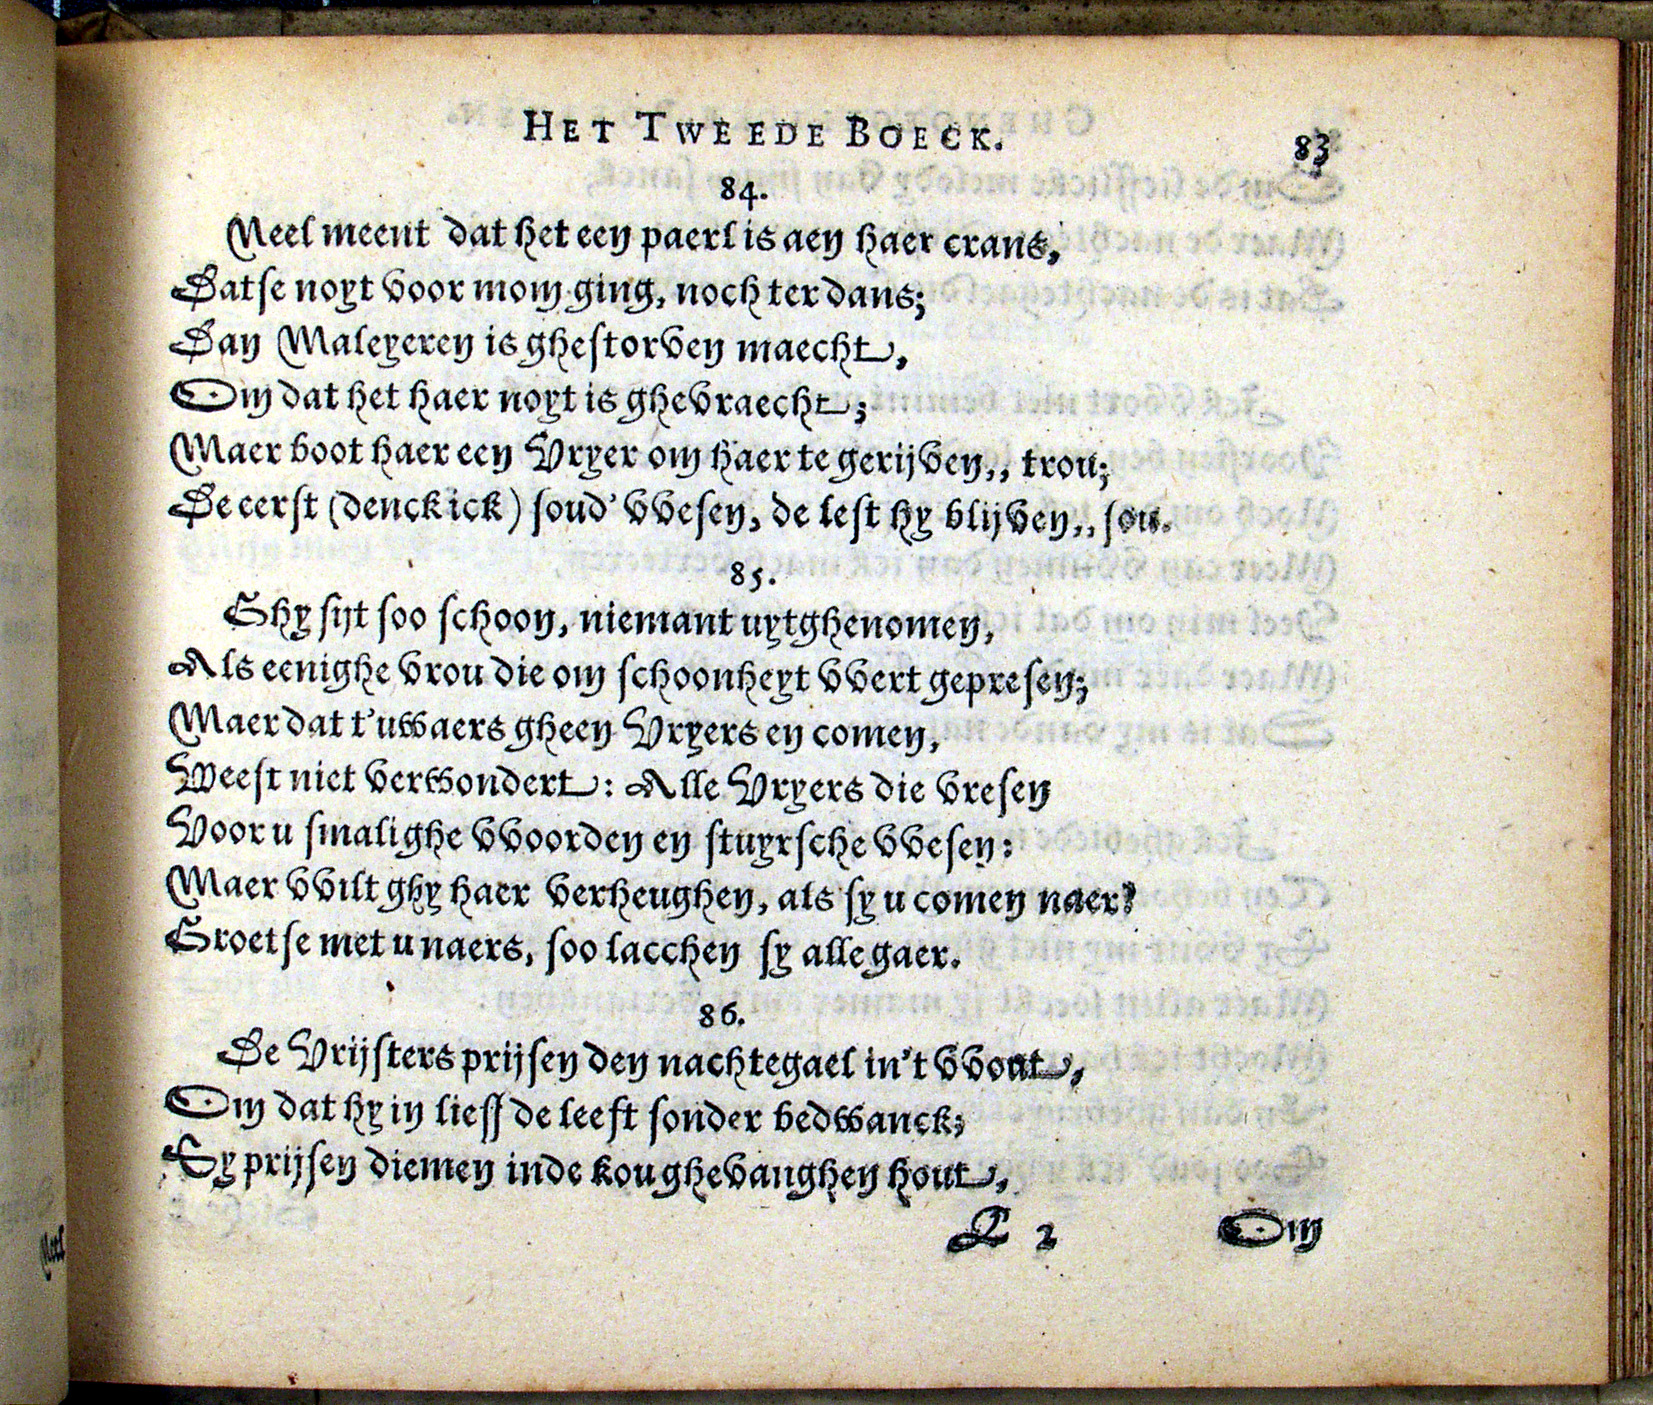 HET TWEEDE BOECK. 83
84.
Neel meent dat het een paerl is aen haer crans,
Datse noyt voor mom ging, noch ter dans;
Dan Maleyeren is ghestorven maecht,
Om dat het haer noyt is ghevraecht;
Maer boot haer een Vryer om haer te gerijven,, trou;
De eerst (denck ick) soud' vvesen, de lest hy blijven,, sou.
85.
Ghy sijt soo schoon, niemant uytghenomen,
Als eenighe vrou die om schoonheyt vvert gepresen;
Maer dat t'uwaers gheen Vryers en comen,
Weest niet verwondert: Alle Vryers die vresen
Voor u smalighe vvoorden en stuyrsche vvesen:
Maer vvilt ghy haer verheughen, als sy u comen naer?
Groetse met u naers, soo lacchen sy alle gaer.
86.
De Vrijsters prijsen den nachtegael in't vvout,
Om dat hy in lieffde leeft sonder bedwanck;
Sy prijsen diemen inde kou ghevanghen hout,
L 2 Om